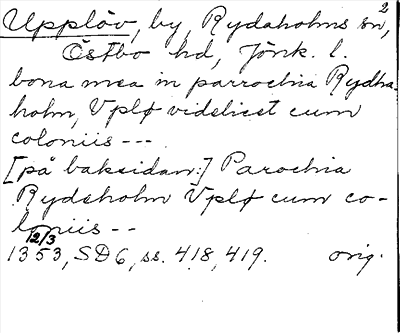 2
Upplöv, by, Rydaholms sn,
Östbo hd, Jönk. l.
bona mea in parrochia Rydha-
holm, Vplø videlicet cum
coloniis ---
[på baksidan:] Parochia
Rydeholm Vplø cum co-
loniis --
12/3
1353, SD6, ss. 418, 419. orig.